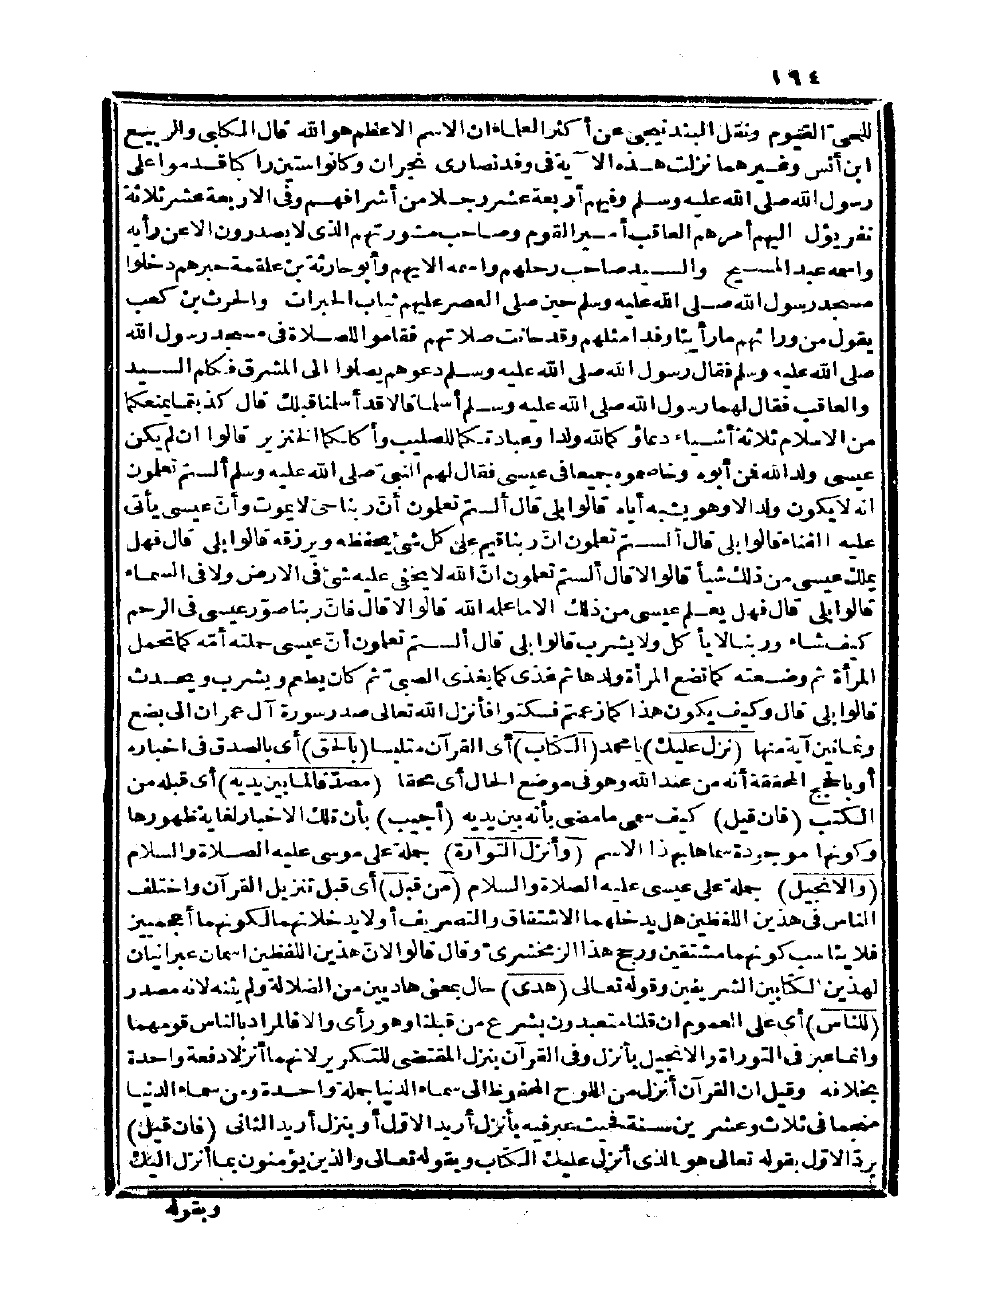 ١٩٤
للحي القيوم ونقل البندنيجي عن أكثر العلماء ان الاسم الاعظم هو الله قال الكلبي والربيع
ابن أنس وغيرهما نزلت هذه الا ية فى وفد نصارى نجران وكانوا ستين راكبا قدموا على
رسول الله صلى الله عليه وسلم وفيهم أربعة عشر رجلا من أشرافهم وفى الاربعة عشر ثلاثة
نفر يؤل اليهم أمرهم العاقب أمير القوم وصاحب مشورتهم الذى لا يصدرون الا عن رأيه
واسمه عبد المسيح والسيد صاحب رحلهم واسمه الايهم وأبو حارثة بن علقمة حبرهم دخلوا
مسجد رسول الله صلى الله عليه وسلم حين صلى العصر عليهم ثياب الحبرات والحرث بن كعب
يقول من ورائهم ما رأينا وفدا مثلهم وقد حانت صلاتهم فقاموا للصلاة فى مسجد رسول الله
صلى الله عليه وسلم فقال رسول الله صلى الله عليه وسلم دعوهم يصلوا الى المشرق فكلم السيد
والعاقب فقال لهما رسول الله صلى الله عليه وسلم أسلما قالا قد أسلمنا قبلك قال كذبتما يمنعكما
من الاسلام ثلاثة أشياء دعاؤكما لله ولدا وعبادتكما للصليب وأكلكما الخنزير قالوا ان لم يكن
عيسى ولد الله فمن أبوه وخاصموه جميعا فى عيسى فقال لهم النبي صلى الله عليه وسلم ألستم تعلمون
انه لا يكون ولد الا وهو يشبه أباه قالوا بلى قال ألستم تعلمون أنّ ربنا حىّ لا يموت وأنّ عيسى يأتى
عليه الفناء قالوا بلى قال ألستم تعلمون انّ ربنا قيم على كل شئ يحفظه ويرزقه قالوا بلى قال فهل
يملك عيسى من ذلك شيأ قالوا لا قال ألستم تعلمون انّ الله لا يخفى عليه شئ فى الارض ولا فى السماء
قالوا بلى قال فهل يعلم عيسى من ذلك الا ما علمه الله قالوا لا قال فانّ ربنا صوّر عيسى فى الرحم
كيف شاء وربنا لا يأكل ولا يشرب قالوا بلى قال ألستم تعلمون أنّ عيسى حملته أمّه كما تحمل
المرأة ثم وضعته كما تضع المرأة ولدها ثم غذى كما يغذى الصبيّ ثم كان يطعم ويشرب ويحدث
قالوا بلى قال وكيف يكون هذا كما زعمتم فسكتوا فأنزل الله تعالى صدر سورة آل عمران الى بضع
وثمانين آية منها (نزل عليك) يا محمد (الكتاب) أى القرآن متلبسا (بالحق) أى بالصدق فى اخباره
أو بالحجج المحققة أنه من عند الله وهو فى موضع الحال أى محقا (مصدّقا لما بين يديه) أى قبله من
الكتب (فان قيل) كيف سمى ما مضى بأنه بين يديه (أجيب) بأن تلك الاخبار لغاية ظهورها
وكونها موجودة سماها بهذا الاسم (وأنزل التوراة) جملة على موسى عليه الصلاة والسلام
(والانجيل) جملة على عيسى عليه الصلاة والسلام (من قبل) أى قبل تنزيل القرآن واختلف
الناس فى هذين اللفظين هل يدخلهما الاشتقاق والتصريف أو لا يدخلانهما لكونهما أعجميين
فلا يناسب كونهما مشتقين ورجح هذا الزمخشرىّ وقال قالوا لانّ هذين اللفظين اسمان عبرانيان
لهذين الكتابين الشريفين وقوله تعالى (هدى) حال بمعنى هاديين من الضلالة ولم يثنه لانه مصدر
(للناس) أى على العموم ان قلنا متعبدون بشرع من قبلنا وهو رأى والا فالمراد بالناس قومهما
وانما عبر فى التوراة والانجيل بأنزل وفى القرآن بنزل المقتضى للتكرير لانهما أنزلا دفعة واحدة
بخلافه وقيل ان القرآن أنزل من اللوح المحفوظ الى سماء الدنيا جملة واحدة ومن سماء الدنيا
منجما فى ثلاث وعشرين سنة فحيث عبر فيه بأنزل أريد الاول أو بنزل أريد الثانى (فان قيل)
يردّ الاول بقوله تعالى هو الذى أنزل عليك الكتاب وبقوله تعالى والذين يؤمنون بما أنزل اليك
وبقوله